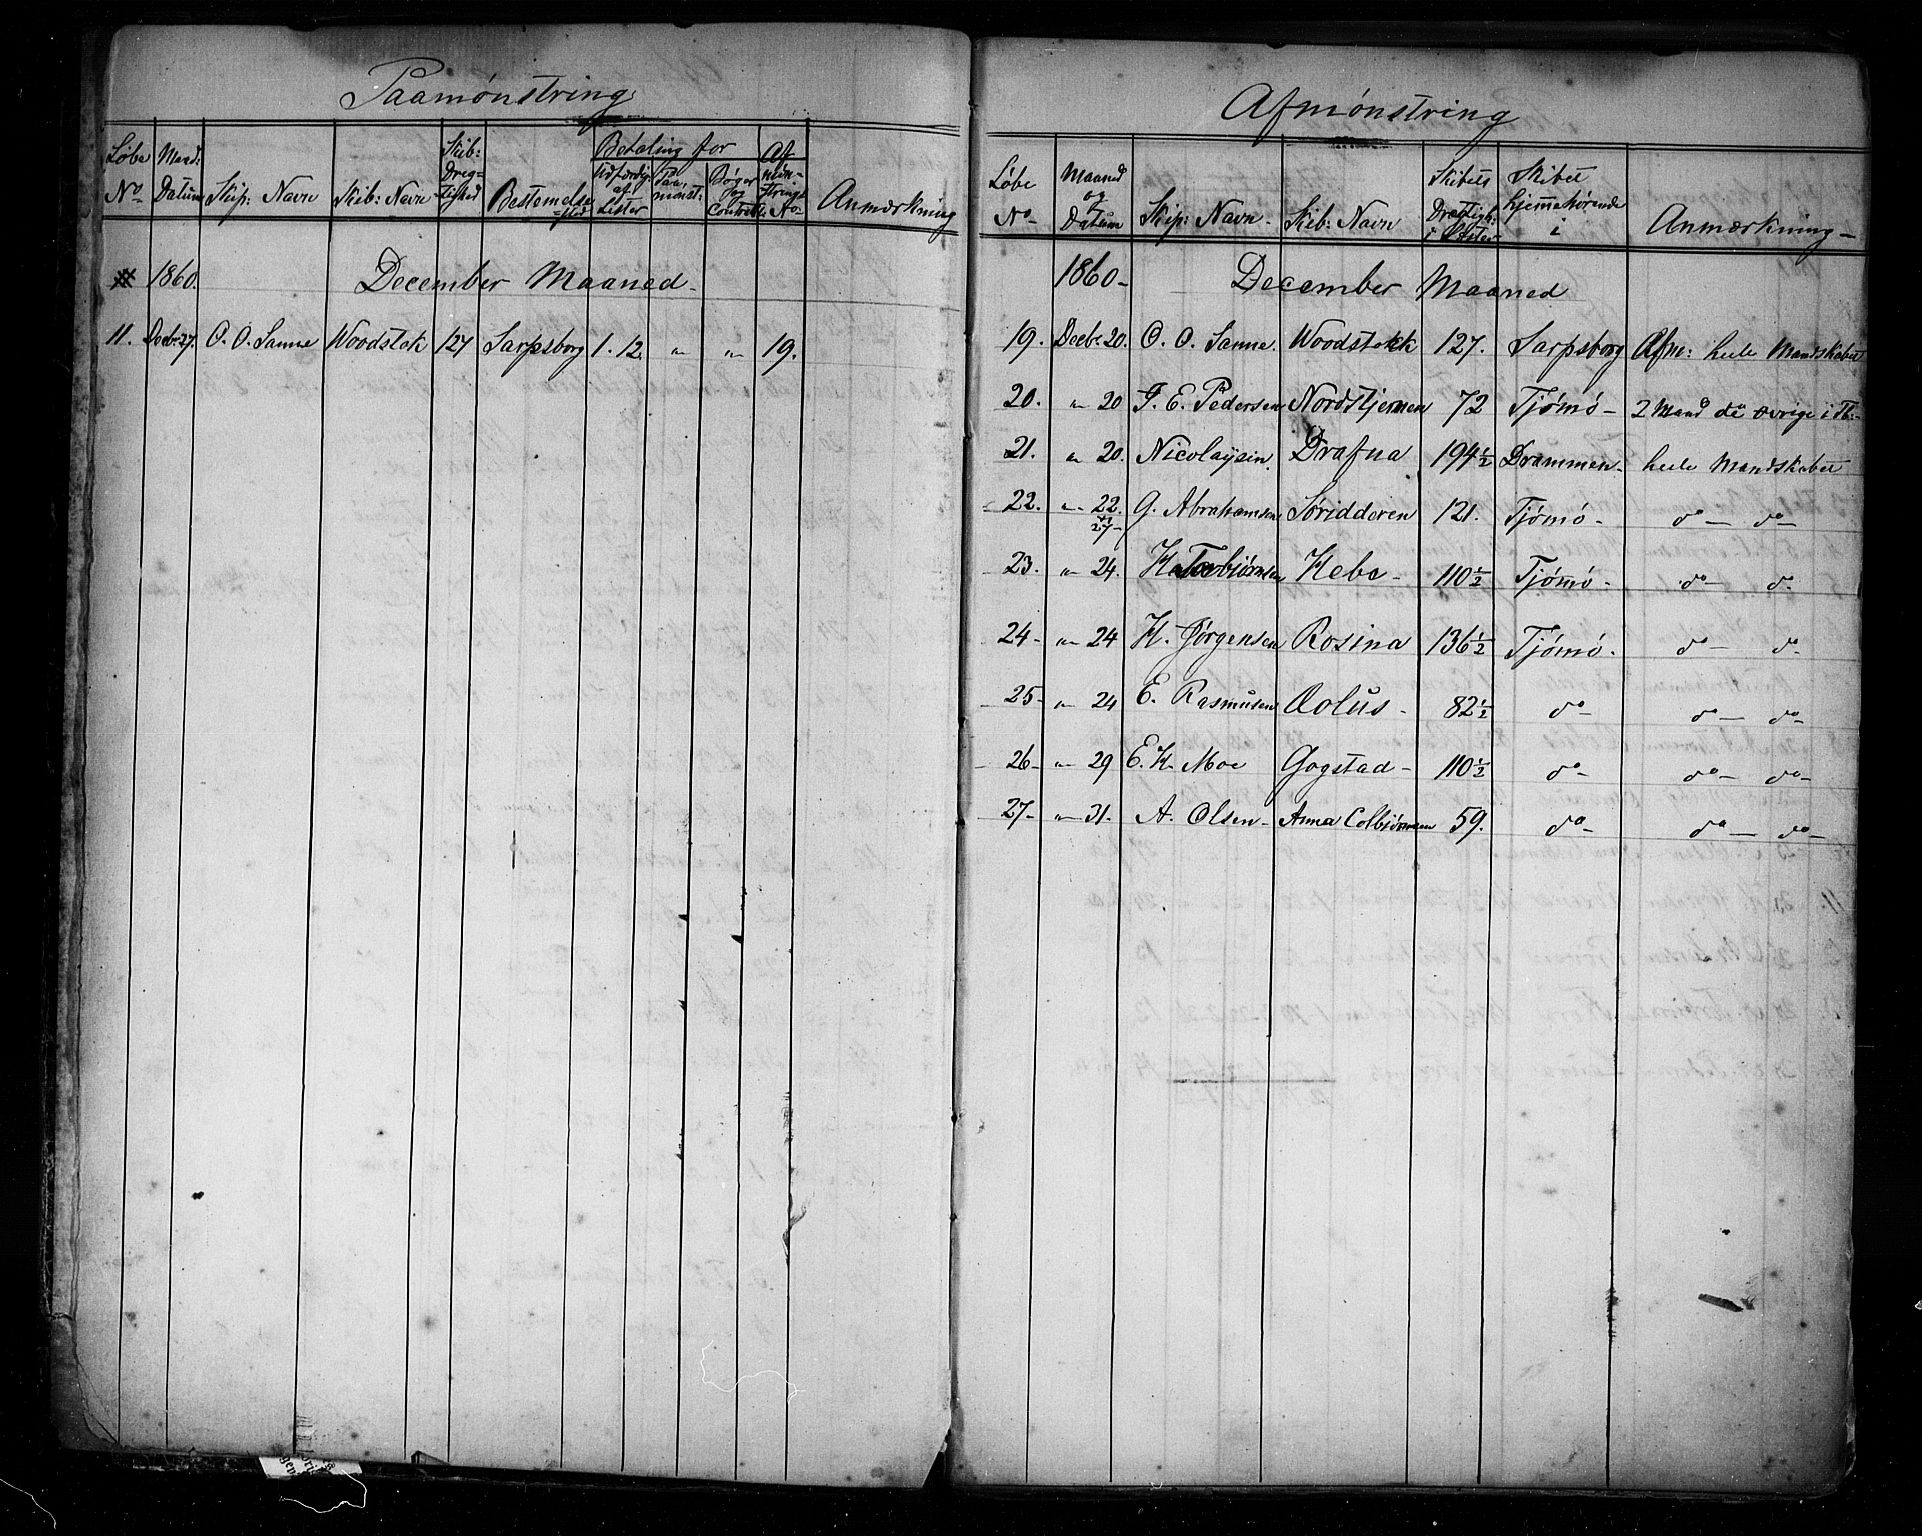 Paamønstring
Løbe No Maand: Datum Skip: Navn Skib: Navn Skib: Dreg-tighed Bestemelse-sted Betaling for Udfærdig: af Lister Paa-mønst: Bøger og Contrakt: Af møn-strings No Anmærkning
1860. December Maaned
11. Decbr 27. O. O. Sanne Woodstok 127 Sarpsborg 1. 12. " " 19.
Afmønstring
Løbe No Maaned og Datum Skip: Navn Skib: Navn Skibets Drægtigh: i Læster Skibet hjemmehørende i Anmærkning
1860 December Maaned
19. Decbr 20. O. O. Sanne. Woodstokk 127. Sarpsborg Afm: hele Mandskabet
20. " 20 J. E. Pedersen Nordstjernen 72 Tjømø 2 Mand de øvrige i Tb:
21. " 20. Nicolaysen Drafna 194 1/2 Drammen hele Mandskabet
22. " 22. 27 G. Abrahamsen Søridderen 121. Tjømø do do
23. " 24. H. Torbjørnsen Hebe 110 1/2 Tjømø do do
24 " 24 H. Jørgensen Rosina 136 1/2 Tjømø do do
25 " 24 E. Rasmusen Æolus 82 1/2 do do do
26 " 29 E. H. Moe Gogstad 110 1/2 do do do
27 " 31. A. Olsen Anna Colbjørnsen 59. do do do